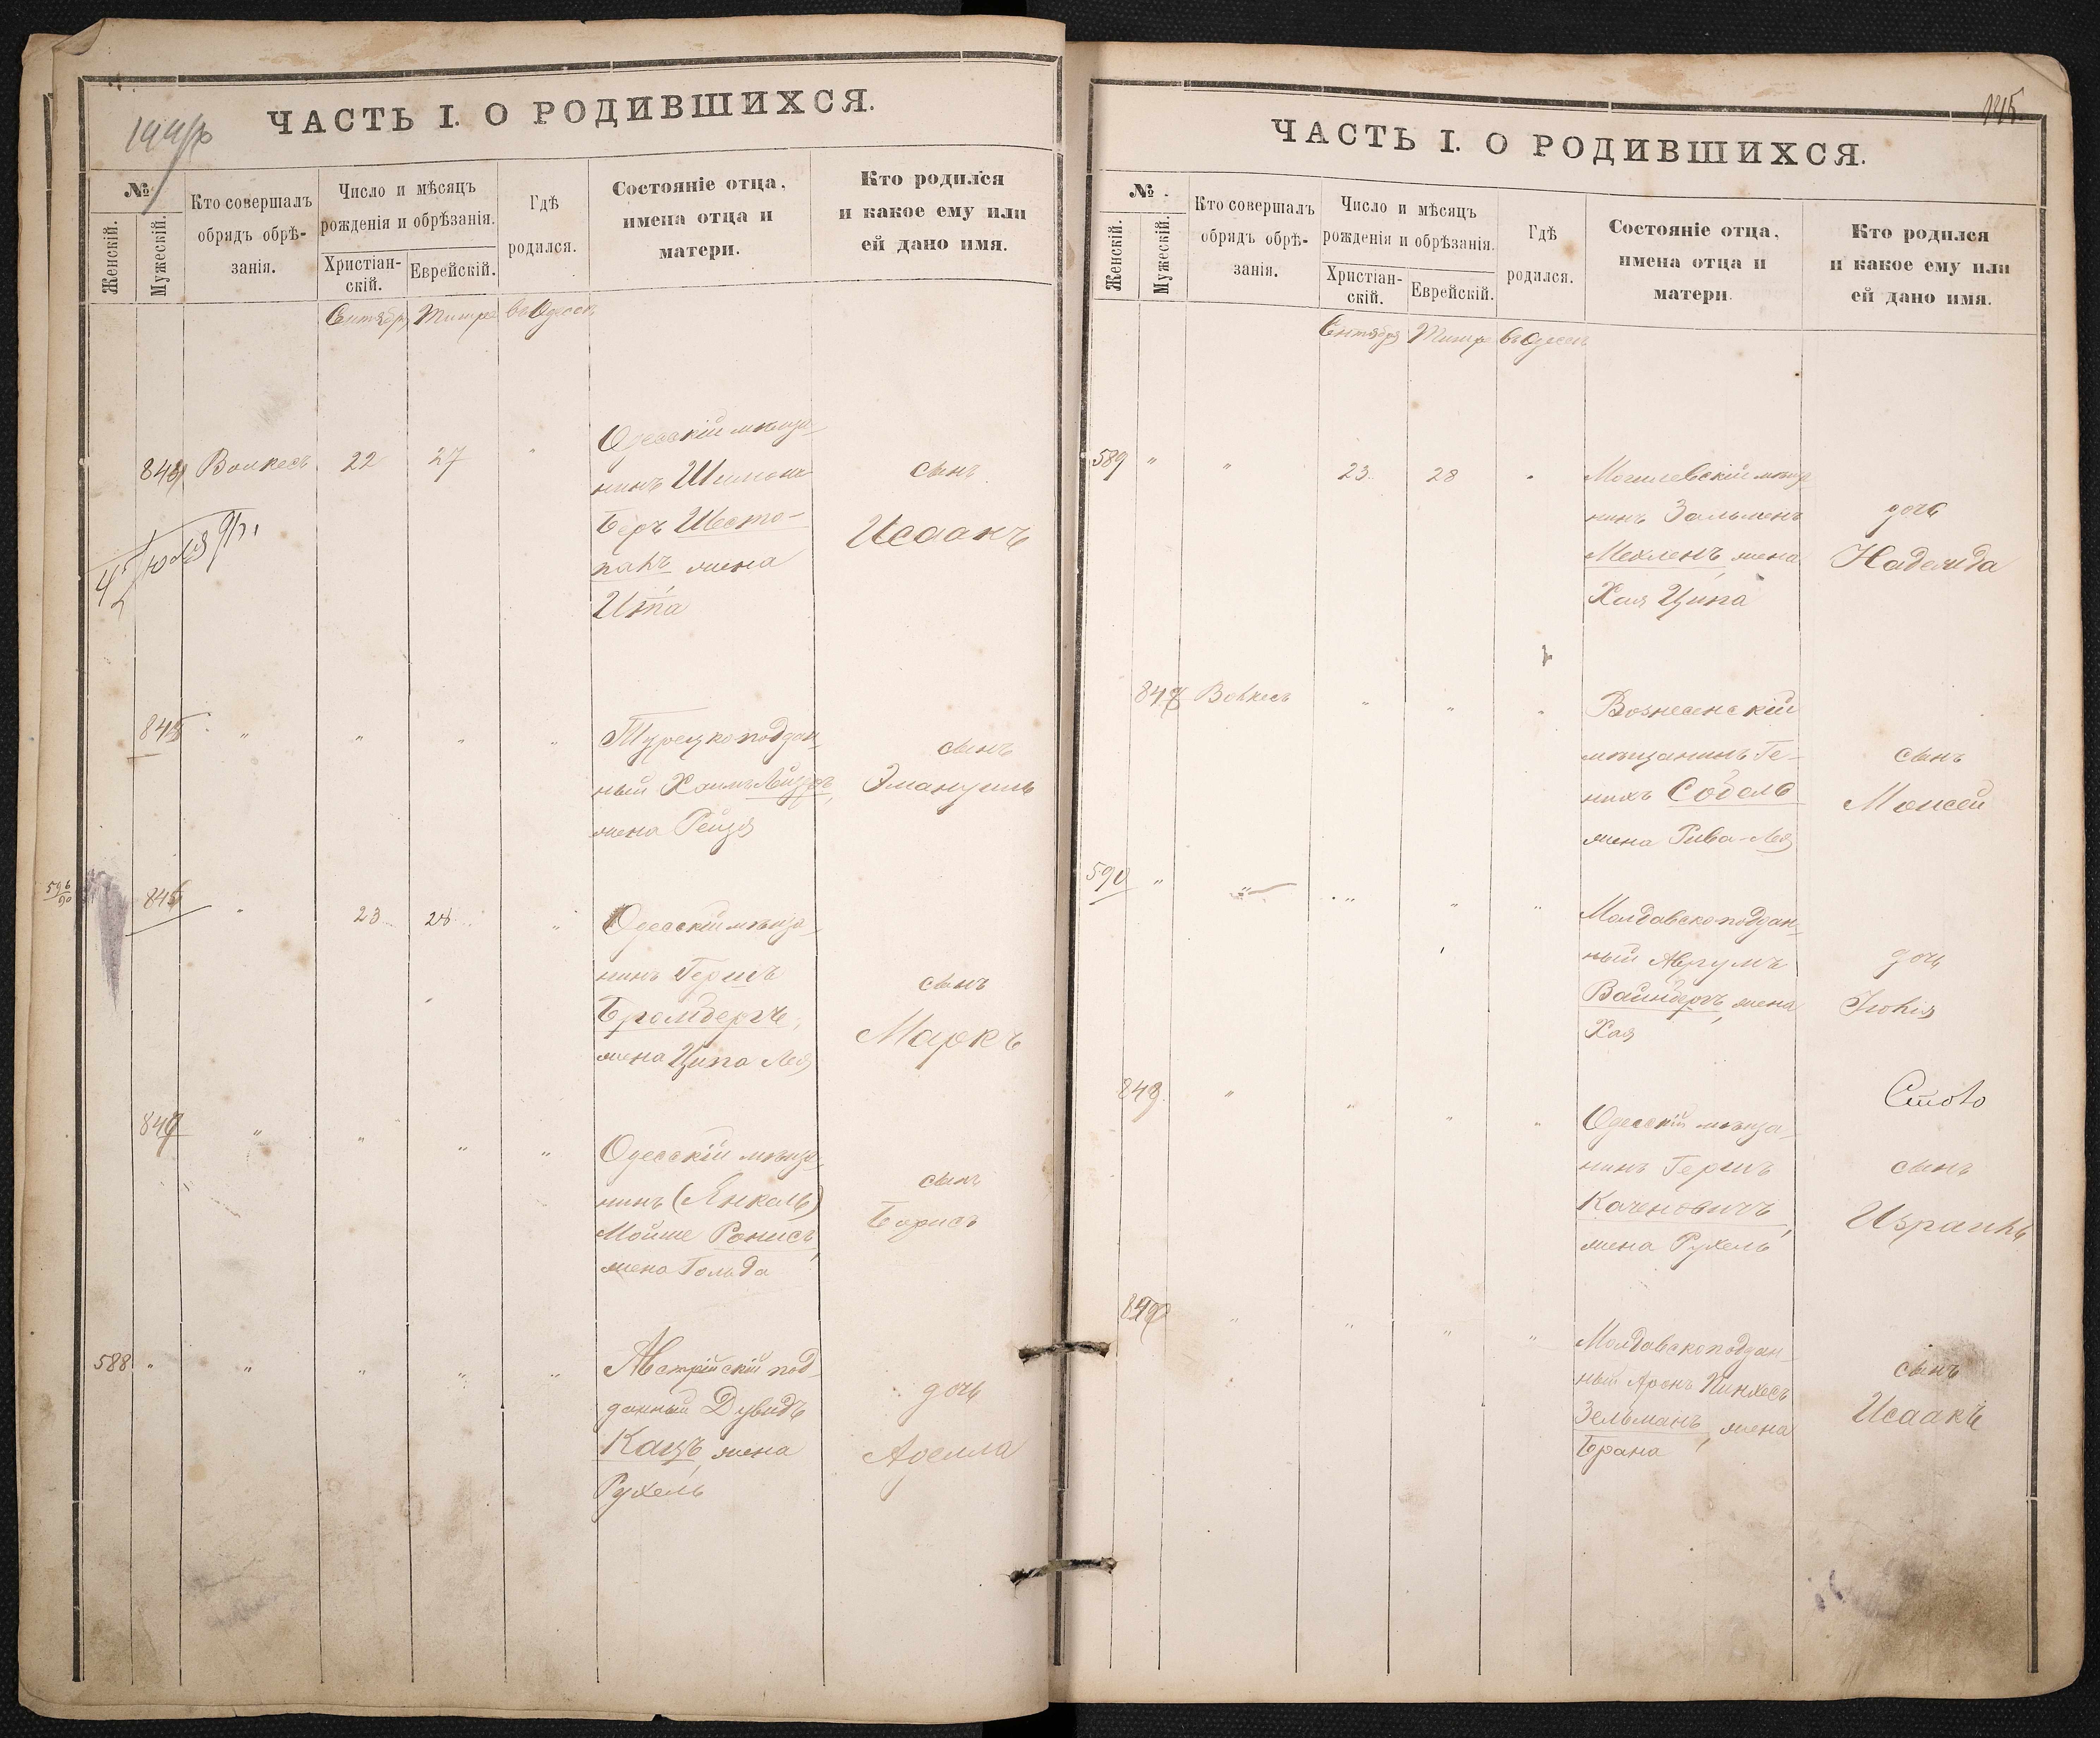 ЧАСТЬ I. О РОДИВШИХСЯ.
№
Женскій.
Мужескій.
Кто совершалъ
обрядъ обрѣ-
занія.
Число и мѣсяцъ
рожденія и обрѣзанія.
Христіан-
скій.
Еврейскій.
Гдѣ
родился.
Состояніе отца,
имена отца и
матери.
Кто родился
и какое ему или
ей дано имя.
Сентябрь Тишре въ Одессѣ
22 27 "
Одесскій мѣща-
нинъ Шимонъ
Беръ Шесто-
палъ, жена
Ита
сынъ
Исаакъ
845 " " " "
Турецкоподдан-
ный Хаимъ
жена Рейзя
сынъ
Эмануиль
596
90
846 " 23 28 "
Одесскій мѣща-
нинъ Гершъ
Бромбергъ,
жена Ципа Лея
сынъ
Маркъ
" " " "
Одесскій мѣща-
нинъ (Янкель)
Мойше Ронисъ,
жена Гольда
сынъ
Борисъ
588 " " " " "
Австрійскій под-
данный Дувидъ
Кацъ, жена
Рухель
дочь
Аделла
ЧАСТЬ I. О РОДИВШИХСЯ.
145.
№
Женскій.
Мужескій.
Кто совершалъ
обрядъ обрѣ-
занія.
Число и мѣсяцъ
рожденія и обрѣзанія.
Христіан-
скій.
Еврейскій.
Гдѣ
родился.
Состояніе отца,
имена отца и
матери.
Кто родился
и какое ему или
ей дано имя.
Сентября Тишре въ Одессѣ
589 " " 23 28 "
Могилевскій мѣща-
нинъ Зальменъ
Мехленъ, жена
Хая Ципа
дочь
Надежда
" " "
Вознесенскій
мѣщанинъ Ге-
нихъ Собель
жена Рива-Лея
сынъ
Моисей
590 " " " " "
Молдавскоподдан-
ный Аврумъ
Вайнбергъ, жена
Хая
дочь
Юлія
848 " " " "
Одесскій мѣща-
нинъ Гершъ
Каченовичъ,
жена Рухель
сынъ
Израиль
" " " "
Молдавскоподдан-
ный Аронъ Пинхесъ
Зельманъ, жена
Брана
сынъ
Исаакъ